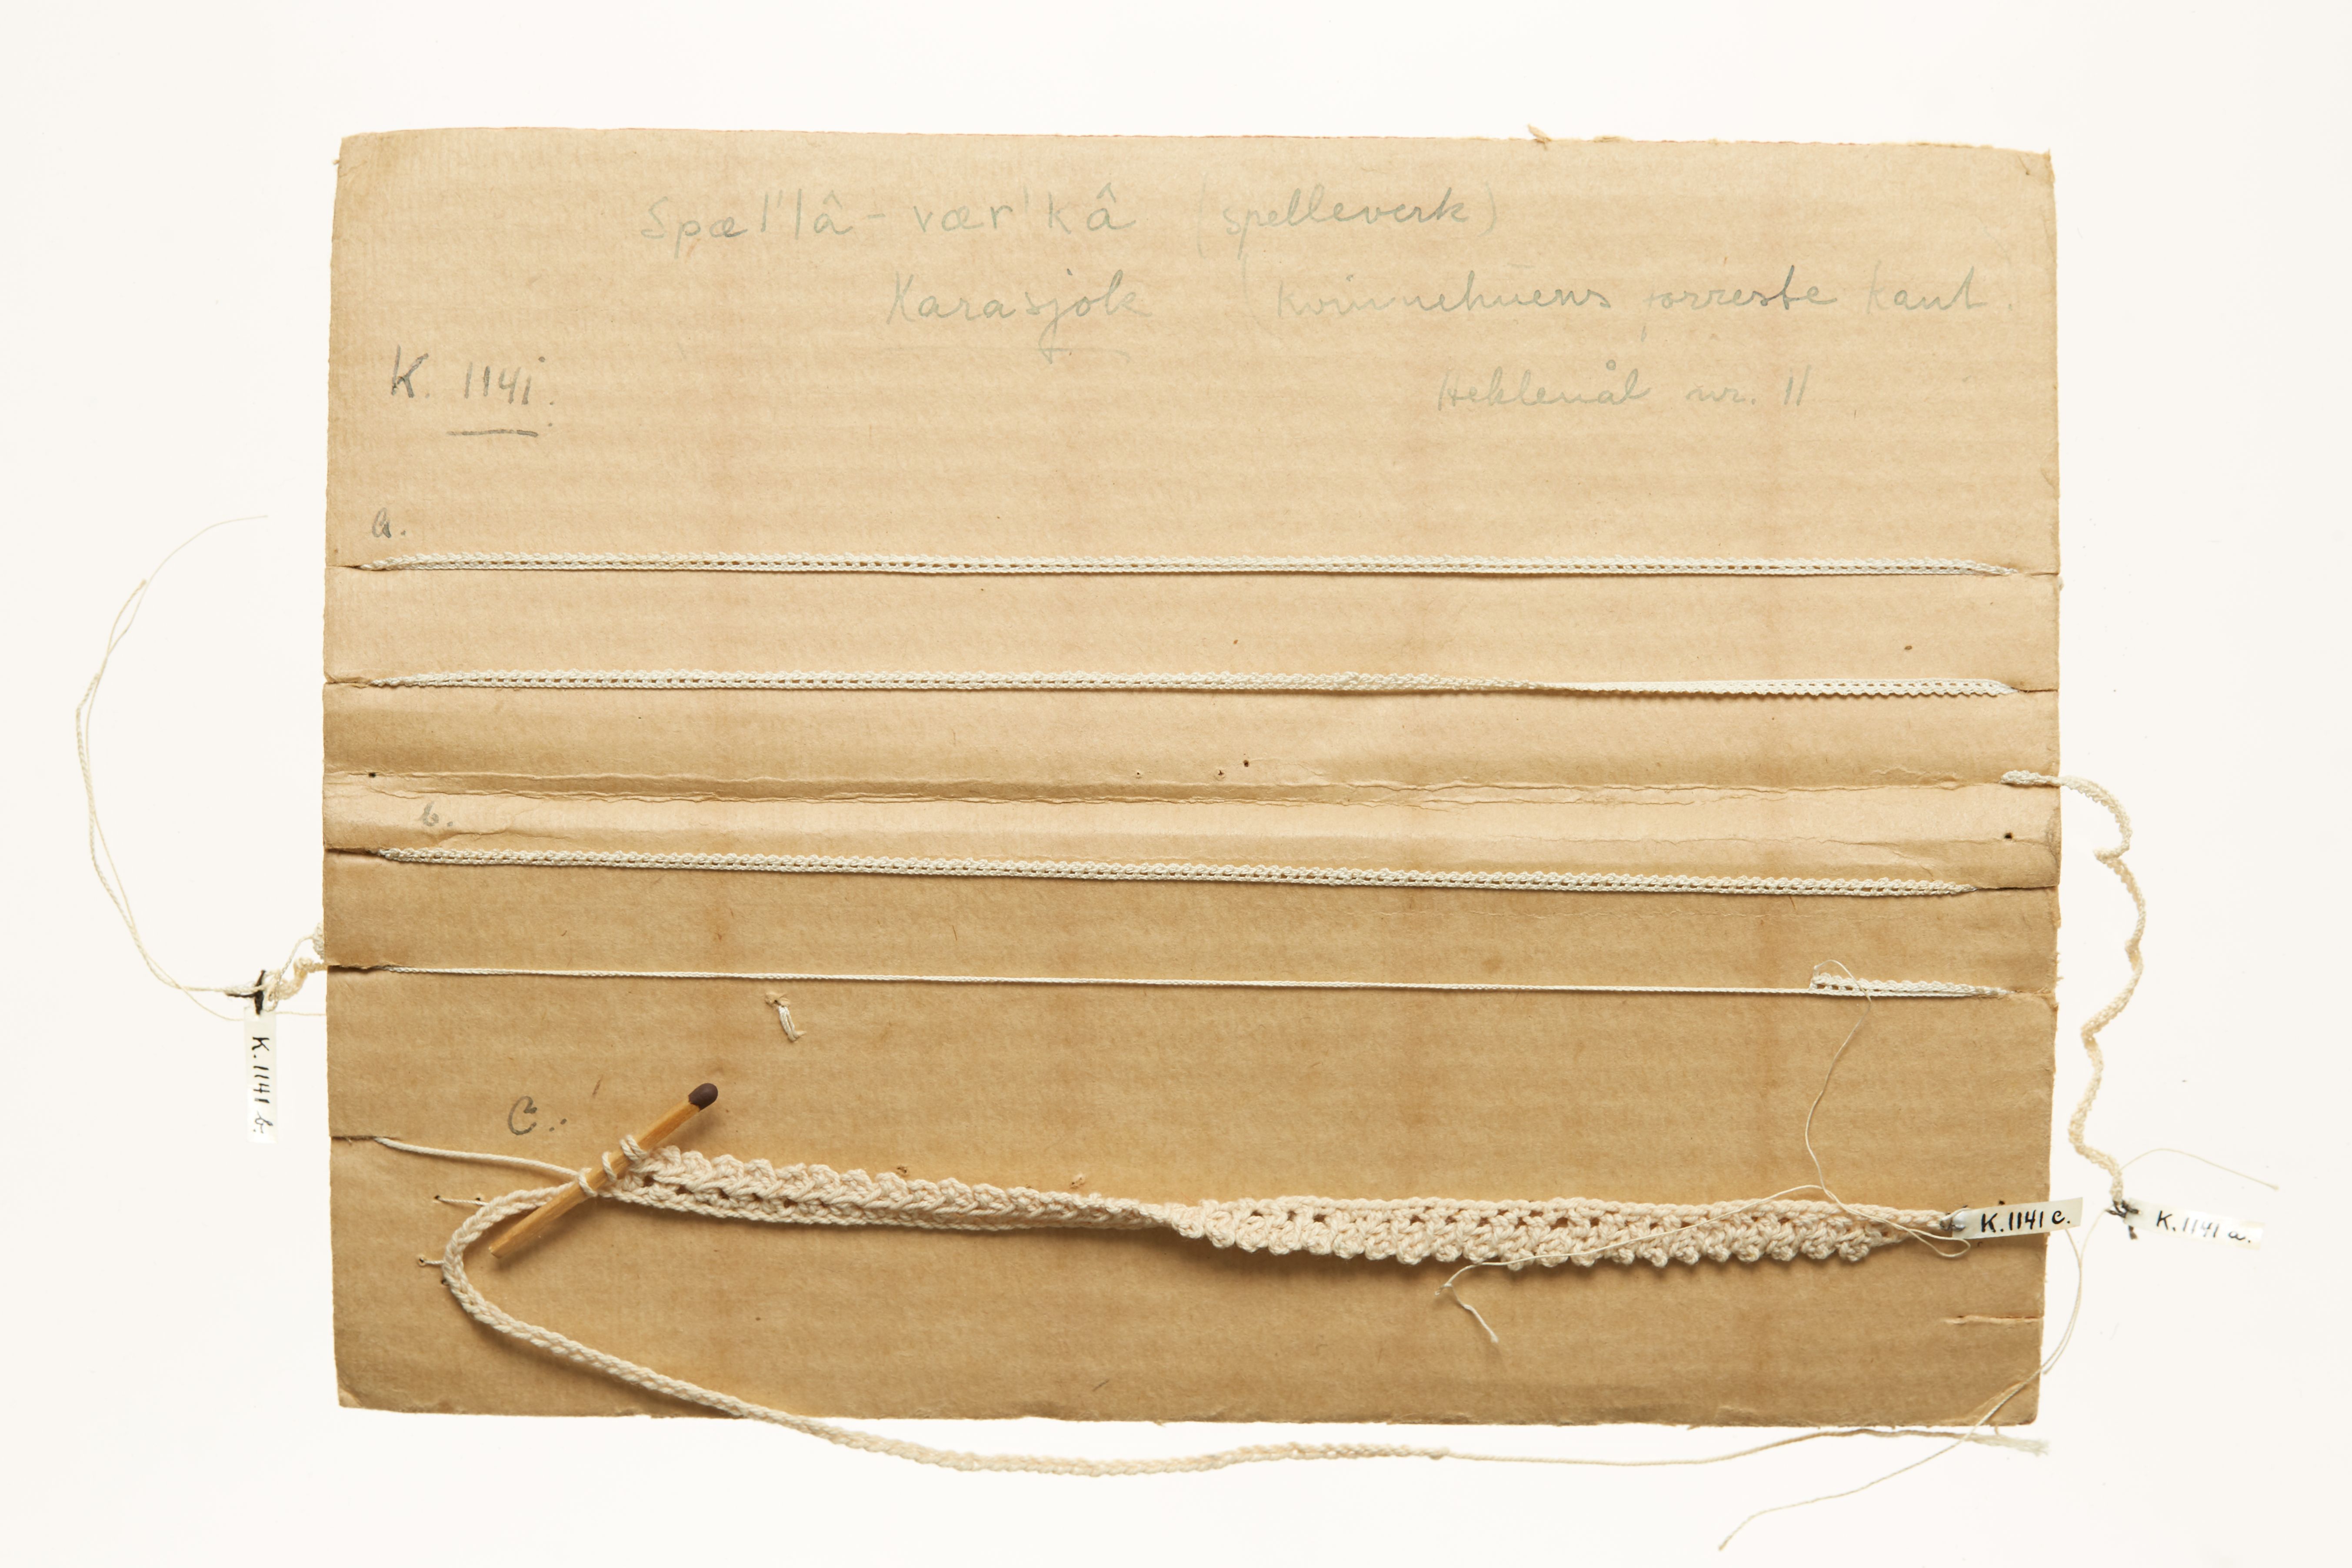 Spæl'lâ - vær'kâ (spelleverk)
Karasjok (kvinnehuens forreste kant.
K. 1141.
Heklenål nr. 11
a.
b.
c.
K. 1141 b.
K. 1141 c.
K. 1141 a.